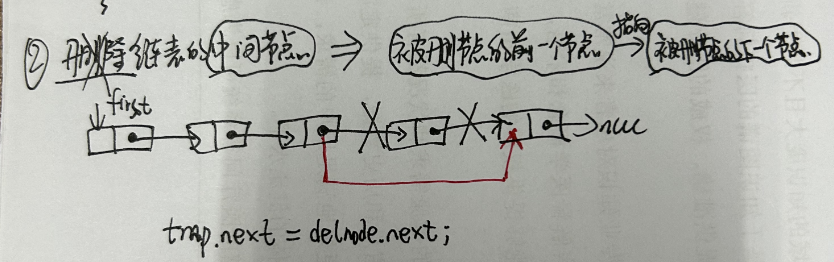 ② 删除链表的中间节点 ⇒ 被删节点的前一个节点 指向→ 被删节点的下一个节点
first
null
tmp.next = delnode.next;